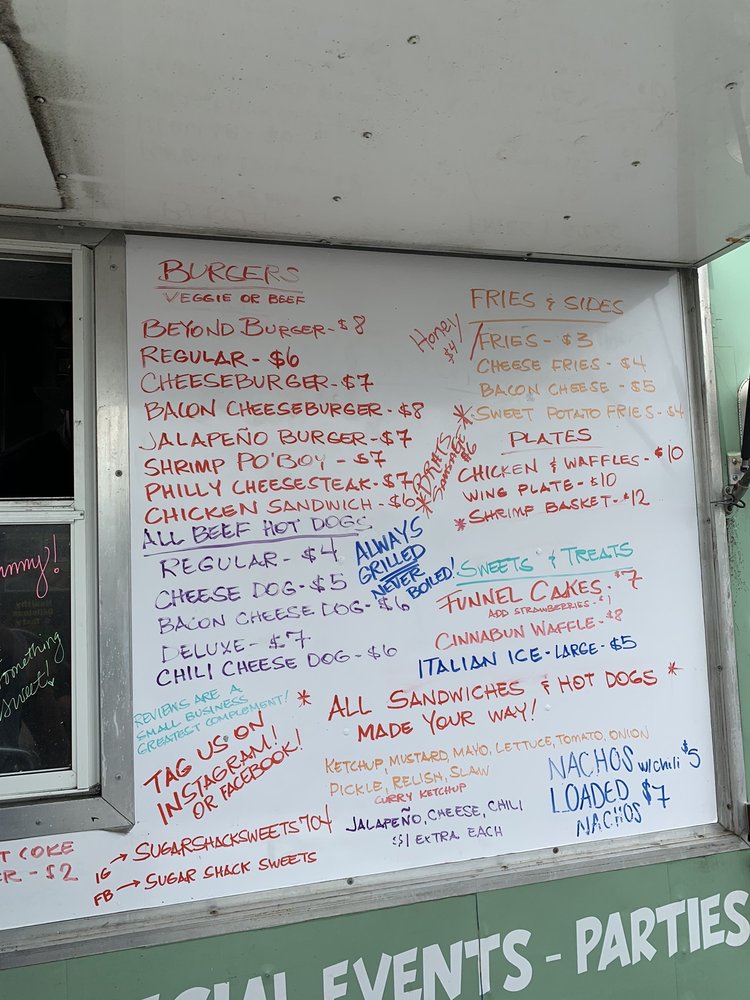 BURGERS
VEGGIE OR BEEF
BEYOND BURGER - $8
REGULAR - $6
CHEESEBURGER - $7
BACON CHEESEBURGER - $8
JALAPEÑO BURGER - $7
SHRIMP PO'BOY - $7
PHILLY CHEESESTEAK - $7
CHICKEN SANDWICH - $6
ALL BEEF HOT DOGS
REGULAR - $4
CHEESE DOG - $5
BACON CHEESE DOG - $6
DELUXE - $7
CHILI CHEESE DOG - $6
ALWAYS
GRILLED
NEVER
BOILED!
Honey
$4
FRIES & SIDES
FRIES - $3
CHEESE FRIES - $4
BACON CHEESE - $5
* SWEET POTATO FRIES - $4
* BRATS
SAUSAGE
$6
PLATES
CHICKEN & WAFFLES - $10
WING PLATE - $10
* SHRIMP BASKET - $12
SWEETS & TREATS
FUNNEL CAKES - $7
ADD STRAWBERRIES - $1
CINNABUN WAFFLE - $8
ITALIAN ICE - LARGE - $5
* ALL SANDWICHES & HOT DOGS *
MADE YOUR WAY!
KETCHUP, MUSTARD, MAYO, LETTUCE, TOMATO, ONION
PICKLE, RELISH, SLAW
CURRY KETCHUP
JALAPEÑO, CHEESE, CHILI
$1 EXTRA EACH
NACHOS w/chili $5
LOADED $7
NACHOS
REVIEWS ARE A
SMALL BUSINESS
GREATEST COMPLEMENT!
TAG US ON
INSTAGRAM!
OR FACEBOOK!
IG → SUGARSHACKSWEETS704
FB → SUGAR SHACK SWEETS
something
sweet!
T COKE
ER - $2
CIAL EVENTS - PARTIES